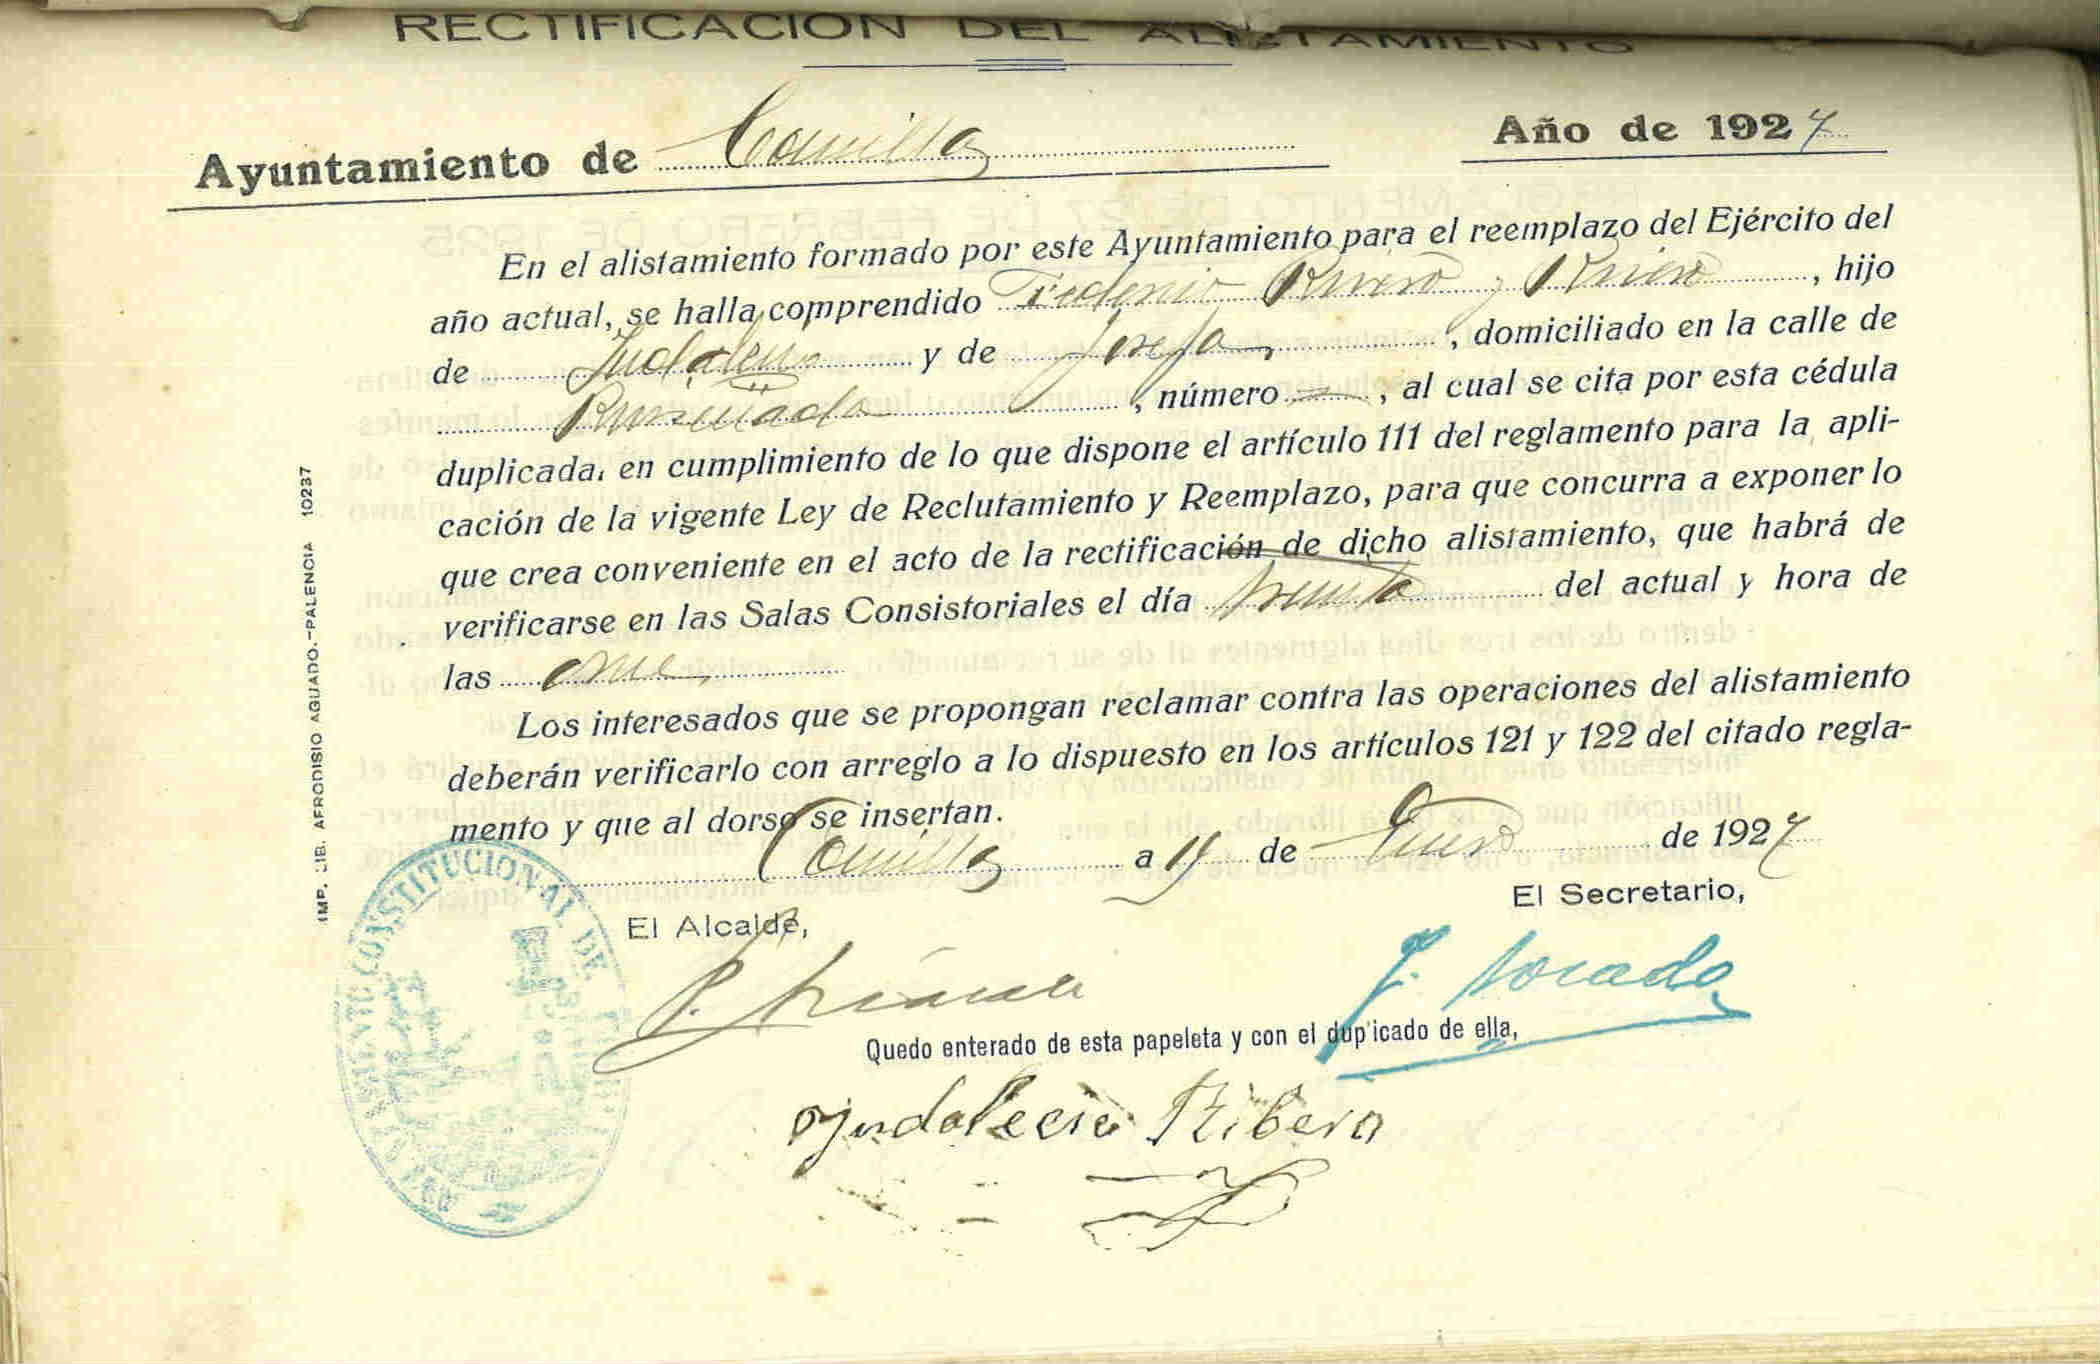 RECTIFICACION DEL ALISTAMIENTO
Ayuntamiento de Comillas Año de 1927
En el alistamiento formado por este Ayuntamiento para el reemplazo del Ejército del
año actual, se halla comprendido Federico Rivero y Rivero, hijo
de Indalecio y de Josefa, domiciliado en la calle de
Ruiseñada, número =, al cual se cita por esta cédula
duplicada, en cumplimiento de lo que dispone el artículo 111 del reglamento para la apli-
cación de la vigente Ley de Reclutamiento y Reemplazo, para que concurra a exponer lo
que crea conveniente en el acto de la rectificación de dicho alistamiento, que habrá de
verificarse en las Salas Consistoriales el día treinta del actual y hora de
las once
Los interesados que se propongan reclamar contra las operaciones del alistamiento
deberán verificarlo con arreglo a lo dispuesto en los artículos 121 y 122 del citado regla-
mento y que al dorso se insertan.
Comillas a 19 de Enero de 1927
El Alcalde,
El Secretario,
Quedo enterado de esta papeleta y con el duplicado de ella,
Yndalecio Ribero
IMP. LIB. AFRODISIO AGUADO.-PALENCIA 10237
AYUNTAMIENTO CONSTITUCIONAL DE